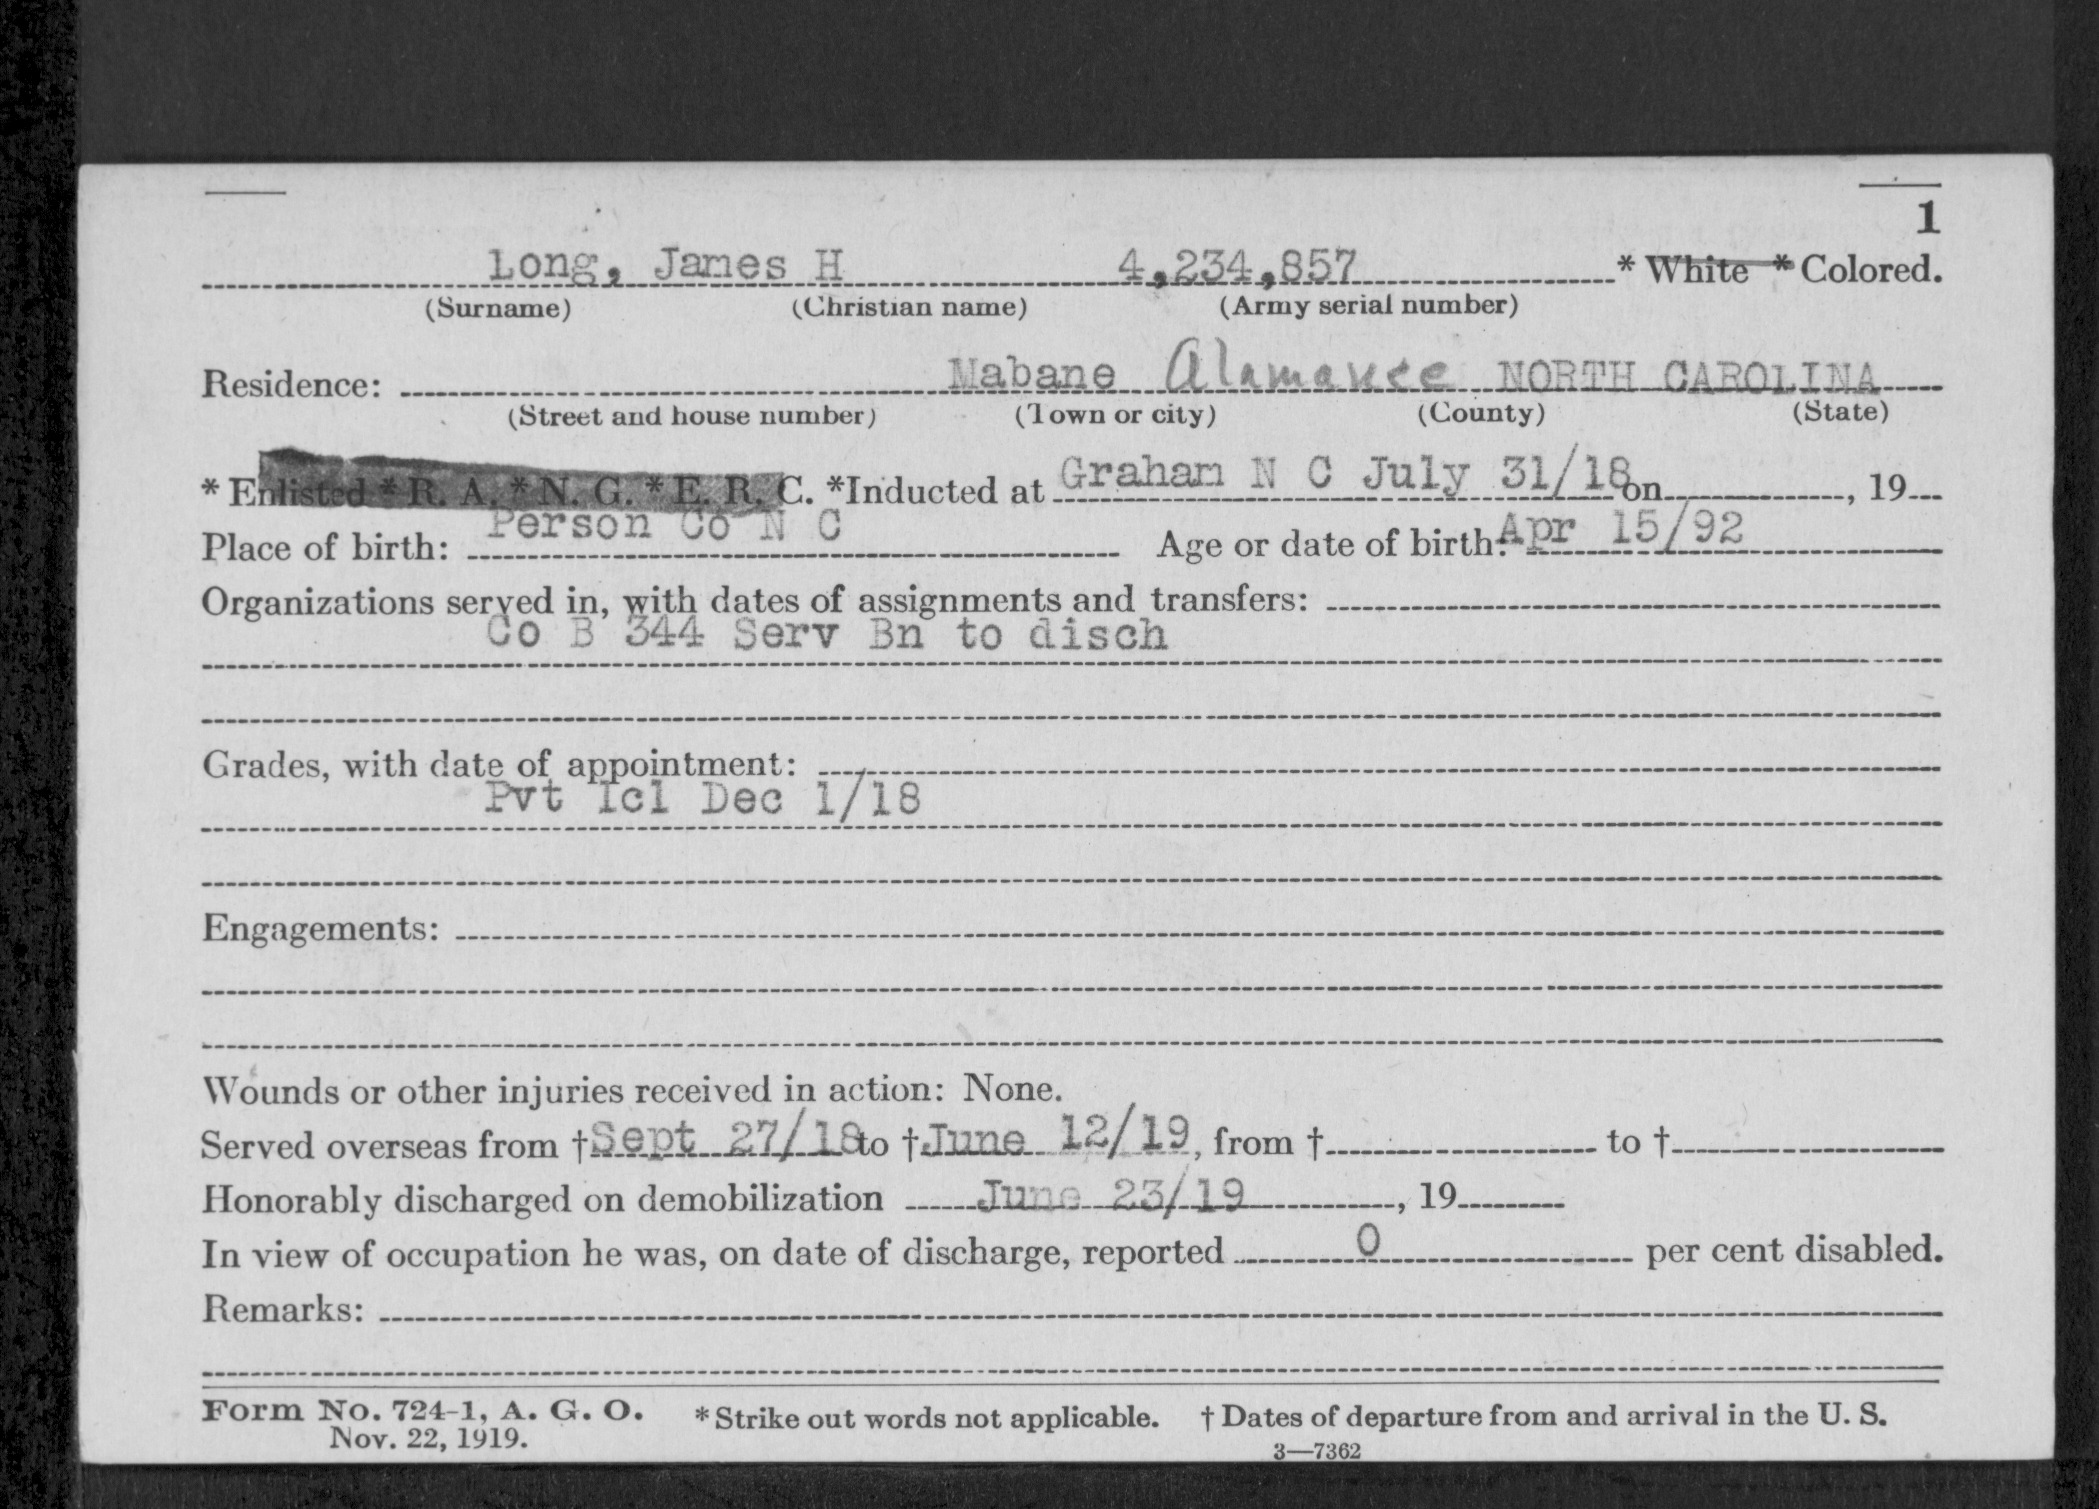 1
Long, James H 4,234,857 * White * Colored.
(Surname) (Christian name) (Army serial number)
Residence: Mabane Alamance NORTH CAROLINA
(Street and house number) (Town or city) (County) (State)
* Enlisted * R. A. * N. G. * E. R. C. *Inducted at Graham N C July 31/18 on , 19
Place of birth: Person Co N C Age or date of birth: Apr 15/92
Organizations served in, with dates of assignments and transfers:
Co B 344 Serv Bn to disch
Grades, with date of appointment:
Pvt Icl Dec 1/18
Engagements:
Wounds or other injuries received in action: None.
Served overseas from † Sept 27/18 to † June 12/19, from † to †
Honorably discharged on demobilization June 23/19 , 19
In view of occupation he was, on date of discharge, reported 0 per cent disabled.
Remarks:
Form No. 724-1, A. G. O. * Strike out words not applicable. † Dates of departure from and arrival in the U. S.
Nov. 22, 1919.
3—7362